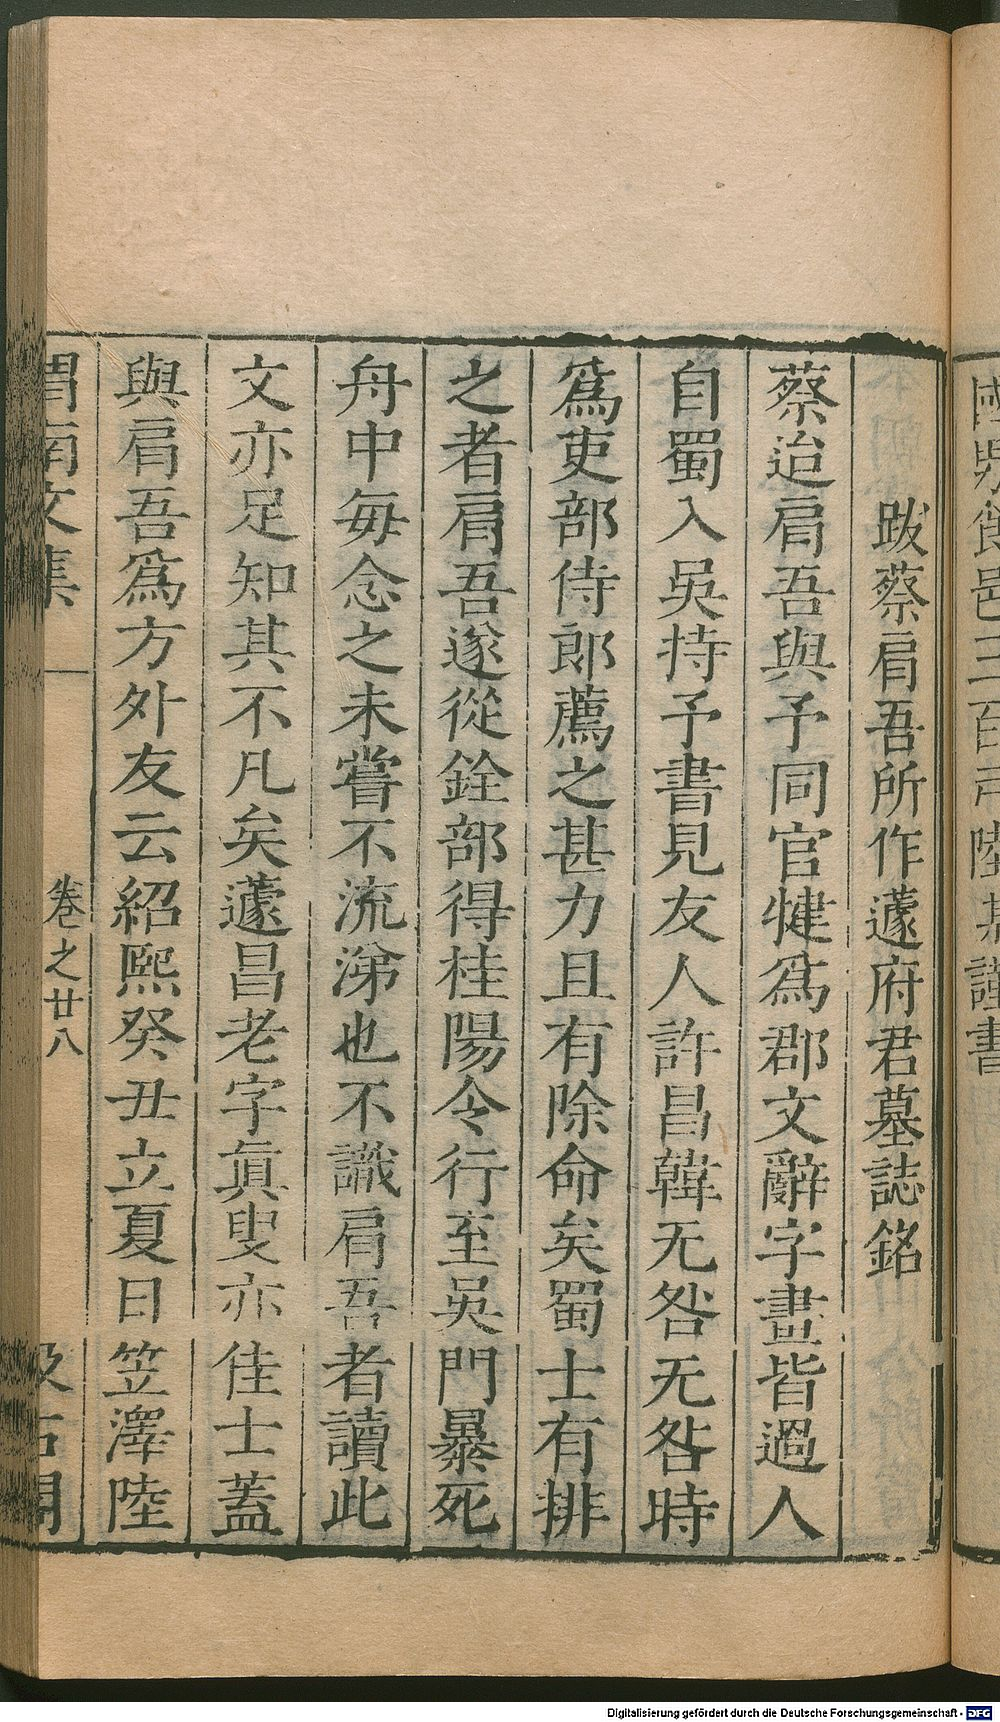 國吳食邑三百戶陸某謹書
跋蔡肩吾所作蘧府君墓誌銘
蔡迨肩吾與予同官犍爲郡文辭字畫皆過人
自蜀入吳持予書見友人許昌韓无咎无咎時
爲吏部侍郎薦之甚力且有除命矣蜀士有排
之者肩吾遂從銓部得桂陽令行至吳門暴死
舟中每念之未嘗不流涕也不識肩吾者讀此
文亦足知其不凡矣蘧昌老字眞叟亦佳士蓋
與肩吾爲方外友云紹熙癸丑立夏日笠澤陸
渭南文集
卷之廿八
汲古閣
Digitalisierung gefördert durch die Deutsche Forschungsgemeinschaft - DFG